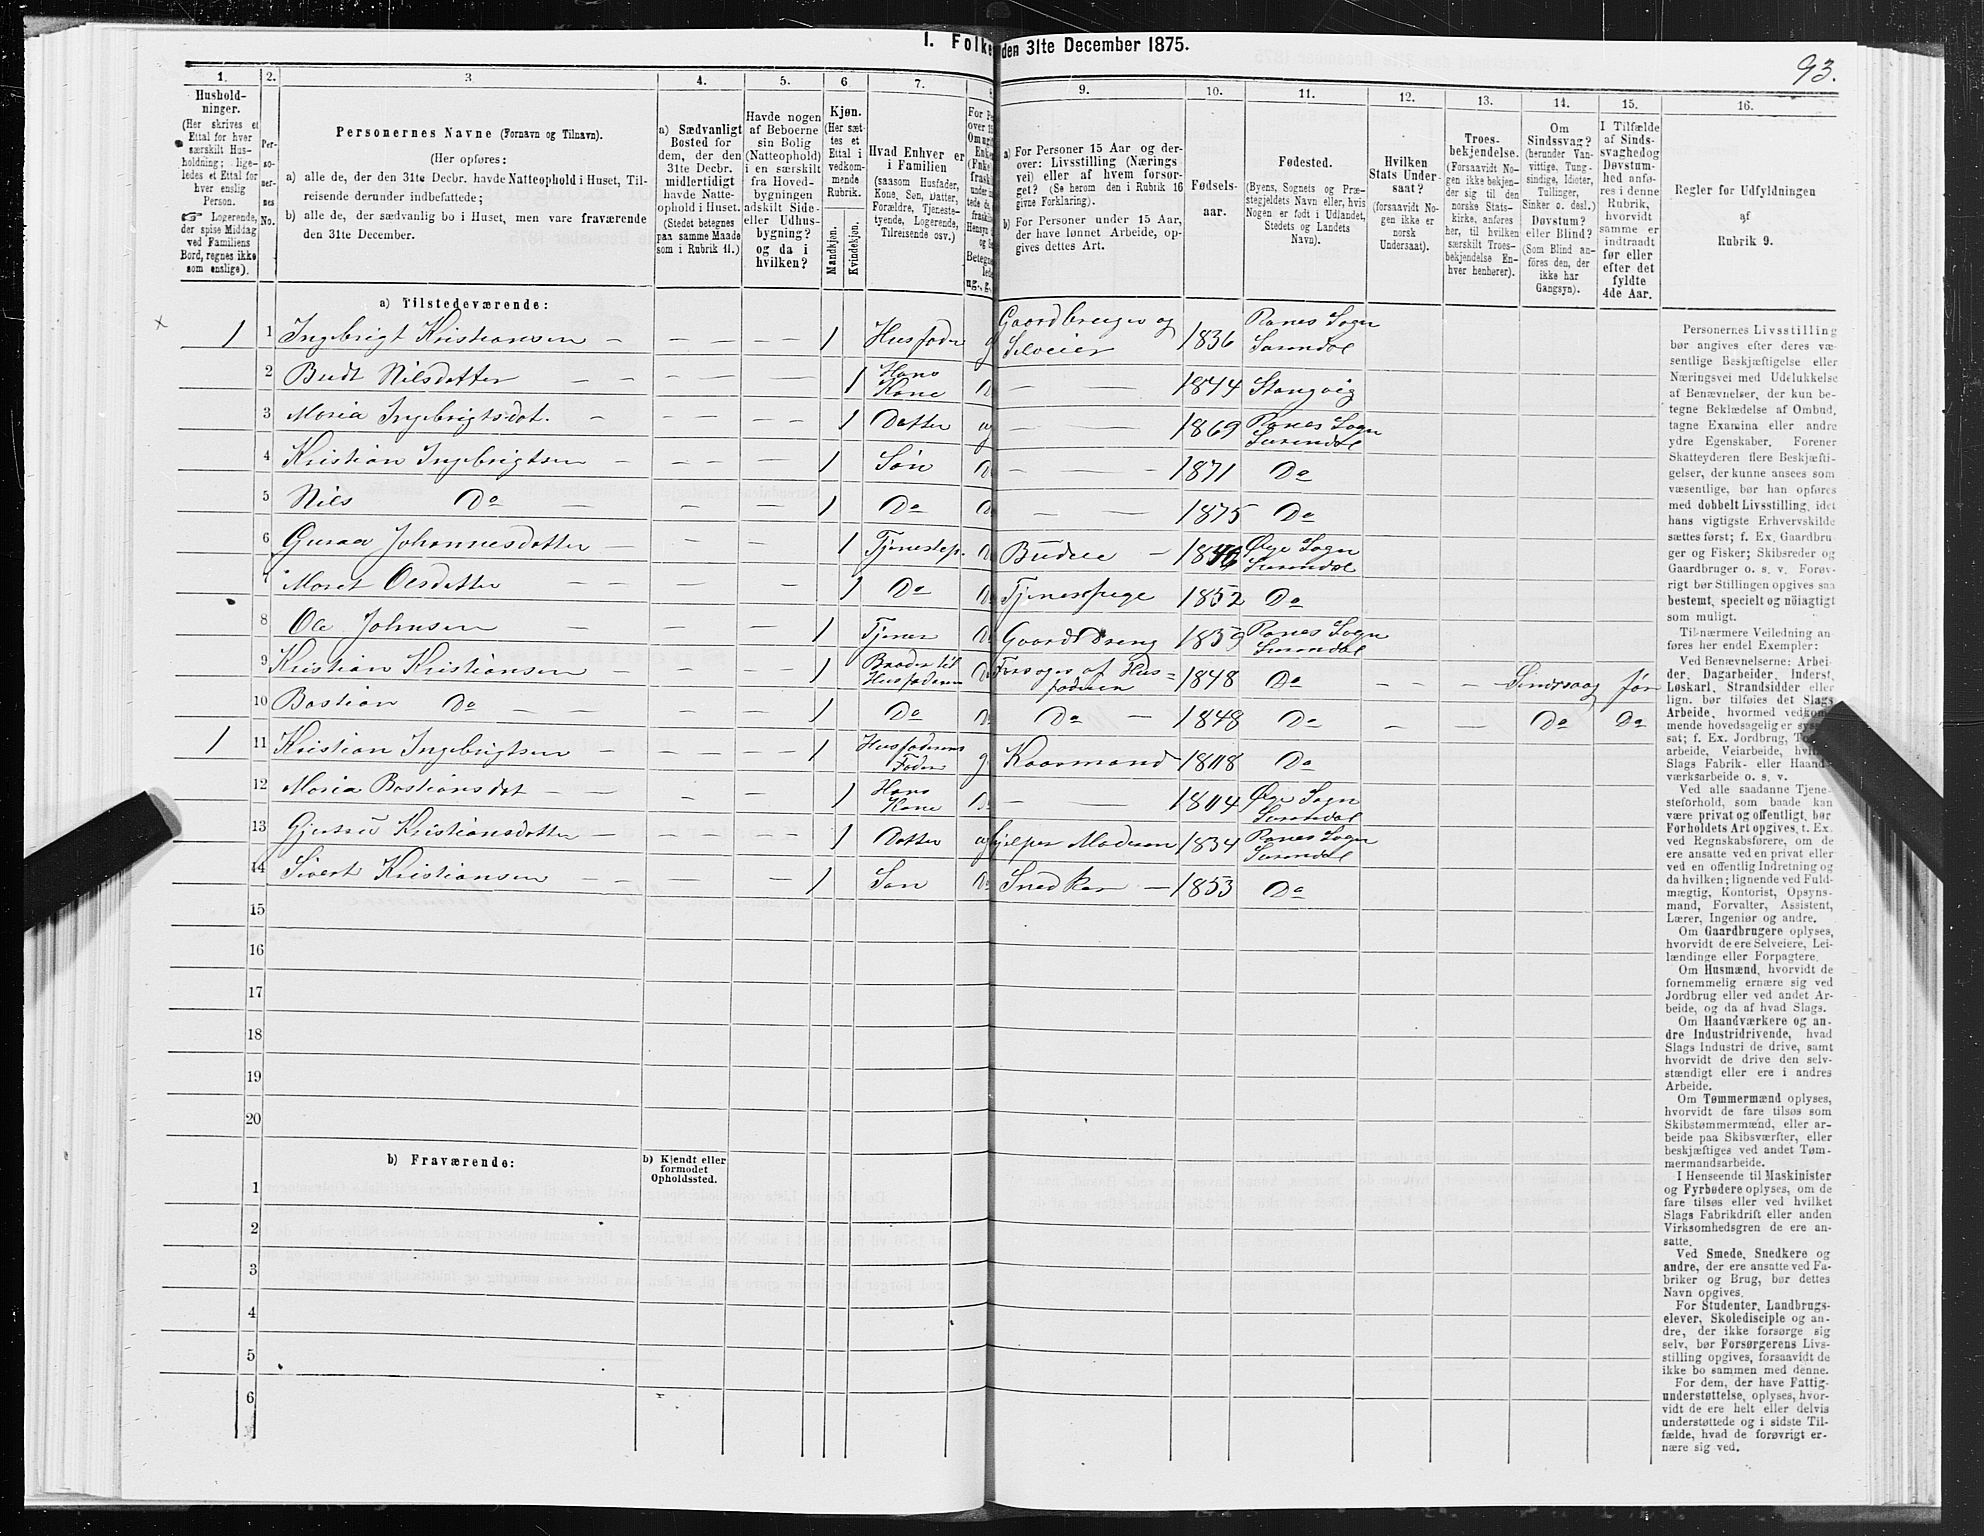 I. Folke den 31te December 1875.
93.
1. 2. 3 4. 5. 6 7. 8 9. 10. 11. 12. 13. 14. 15. 16.
Hushold-
ninger.
(Her skrives et
Ettal for hver
særskilt Hus-
holdning; lige-
ledes et Ettal for
hver enslig
Person.
☞ Logerende,
der spise Middag
ved Familiens
Bord, regnes ikke
som enslige).
Per-
so-
ner-
nes
No.
Personernes Navne (Fornavn og Tilnavn).
(Her opføres:
a) alle de, der den 31te Decbr. havde Natteophold i Huset, Til-
reisende derunder indbefattede;
b) alle de, der sædvanlig bo i Huset, men vare fraværende
den 31te December.
a) Sædvanligt
Bosted for
dem, der den
31te Decbr.
midlertidigt
havde Natte-
ophold i Huset.
(Stedet betegnes
paa samme Maade
som i Rubrik 11.)
Havde nogen
af Beboerne
sin Bolig
(Natteophold)
i en særskilt
fra Hoved-
bygningen
adskilt Side-
eller Udhus-
bygning?
og da i
hvilken?
Kjøn.
(Her sæt-
tes et
Ettal i
vedkom-
mende
Rubrik.
Mandkjøn.
Kvindekjøn.
Hvad Enhver er
i Familien
(saasom Husfader,
Kone, Søn, Datter,
Forældre, Tjeneste-
tyende, Logerende,
Tilreisende osv.)
a) For Personer 15 Aar og der-
over: Livsstilling (Nærings
vei) eller af hvem forsør-
get? (Se herom den i Rubrik 16
givne Forklaring).
b) For Personer under 15 Aar,
der have lønnet Arbeide, op-
gives dettes Art.
Fødsels-
aar.
Fødested.
(Byens, Sognets og Præ-
stegjeldets Navn eller, hvis
Nogen er født i Udlandet,
Stedets og Landets
Navn).
Hvilken
Stats Under-
saat?
(forsaavidt No-
gen ikke er
norsk
Undersaat).
Troes-
bekjendelse.
(Forsaavidt No-
gen ikke bekjen-
der sig til den
norske Stats-
kirke, anføres
her, til hvilken
særskilt Troes-
bekjendelse En-
hver henhører).
Om
Sindssvag?
(herunder Van-
vittige, Tung-
sindige, Idioter,
Tullinger,
Sinker o. desl.)
Døvstum?
eller Blind?
(Som Blind an-
føres den, der
ikke har
Gangsyn).
I Tilfælde
af Sinds-
svaghedog
Døvstum-
hed anfø-
res i denne
Rubrik,
hvorvidt
samme er
indtraadt
før eller
efter det
fyldte
4de Aar.
Regler for Udfyldningen
af
Rubrik 9.
a) Tilstedeværende:
1 1 Ingebrigt Kristiansen 1 Husfader g Gaardbruger og Selveier 1836 Ranes Sogn Surendal
2 Budt Nilsdatter 1 Hans Kone Do 1844 Stangvig
3 Maria Ingebrigtsdat. 1 Datter ug 1869 Ranes Sogn Surendal
4 Kristian Ingebrigtsen 1 Søn Do 1871 Do
5 Nils Do 1 Do Do 1875 Do
6 Guraa Johannesdatter 1 Tjenestep. Do Budeie 1846 Øye Sogn Surendal
7 Maret Olsdatter 1 Do Do Tjenestpige 1852 Do
8 Ole Johnsen 1 Tjener Do Gaardsdreng 1859 Ranes Sogn Surendal
9 Kristian Kristiansen 1 Broder til Husfaderen Do Forsøges af Hus- faderen 1848 Do Sindsvag før
10 Bastian Do 1 Do Do Do 1848 Do Do Do
1 11 Kristian Ingebrigtsen 1 Husfaderens Fader g Kaarmand 1808 Do
12 Maria Bastiansdat 1 Hans Kone Do 1804 Øye Sogn Surendal
13 Gjertru Kristiansdatter 1 Datter ug hjelper Moderen 1834 Ranes Sogn Surendal
14 Sivert Kristiansen 1 Søn Do Snedker 1853 Do
15
16
17
18
19
20
b) Fraværende:
b) Kjendt eller
formodet
Opholdssted.
1
2
3
4
5
6
Personernes Livsstilling
bør angives efter deres væ-
sentlige Beskjæftigelse eller
Næringsvei med Udelukkelse
af Benævnelser, der kun be-
tegne Beklædelse af Ombud,
tagne Examina eller andre
ydre Egenskaber. Forener
Skatteyderen flere Beskjæfti-
gelser, der kunne ansees som
væsentlige, bør han opføres
med dobbelt Livsstilling, idet
hans vigtigste Erhvervskilde
sættes først; f. Ex. Gaardbru-
ger og Fisker; Skibsreder og
Gaardbruger o. s. v. Forøv-
rigt bør Stillingen opgives saa
bestemt, specielt og nöiagtigt
som muligt.
Til nærmere Veiledning an-
føres her endel Exempler:
Ved Benævnelserne: Arbei-
der, Dagarbeider, Inderst,
Løskarl, Strandsidder eller
lign. bør tilføies det Slags
Arbeide, hvormed vedkom-
mende hovedsagelig er syssel-
sat; f. Ex. Jordbrug, Tomte-
arbeide, Veiarbeide, hvilket
Slags Fabrik- eller Haand-
værksarbeide o. s. v.
Ved alle saadanne Tjene-
steforhold, som baade kan
være privat og offentligt, bør
Forholdets Art opgives, t. Ex.
ved Regnskabsførere, om de
ere ansatte ved en privat eller
ved en offentlig Indretning og
da hvilken; lignende ved Fuld-
mægtig, Kontorist, Opsyns-
mand, Forvalter, Assistent,
Lærer, Ingeniør og andre.
Om Gaardbrugere oplyses,
hvorvidt de ere Selveiere, Lei-
lændinge eller Forpagtere.
Om Husmænd, hvorvidt de
fornemmelig ernære sig ved
Jordbrug eller ved andet Ar-
beide, og da af hvad Slags.
Om Haandværkere og an-
dre Industridrivende, hvad
Slags Industri de drive, samt
hvorvidt de drive den selv-
stændigt eller ere i andres
Arbeide.
Om Tømmermænd oplyses,
hvorvidt de fare tilsøs som
Skibstømmermænd, eller ar-
beide paa Skibsværfter, eller
beskjæftiges ved andet Tøm-
mermandsarbeide.
I Henseende til Maskinister
og Fyrbødere oplyses, om de
fare tilsøs eller ved hvilket
Slags Fabrikdrift eller anden
Virksomhedsgren de ere an-
satte.
Ved Smede, Snedkere og
andre, der ere ansatte ved Fa-
briker og Brug, bør dettes
Navn opgives.
For Studenter, Landbrugs-
elever, Skoledisciple og an-
dre, der ikke forsørge sig
selv, bør Forsørgerens Livs-
stilling opgives, forsaavidt de
ikke bo sammen med denne.
For dem, der have Fattig-
understøttelse, oplyses, hvor-
vidt de ere helt eller delvis
understøttede og i sidste Til-
fælde, hvad de forøvrigt er-
nære sig ved.